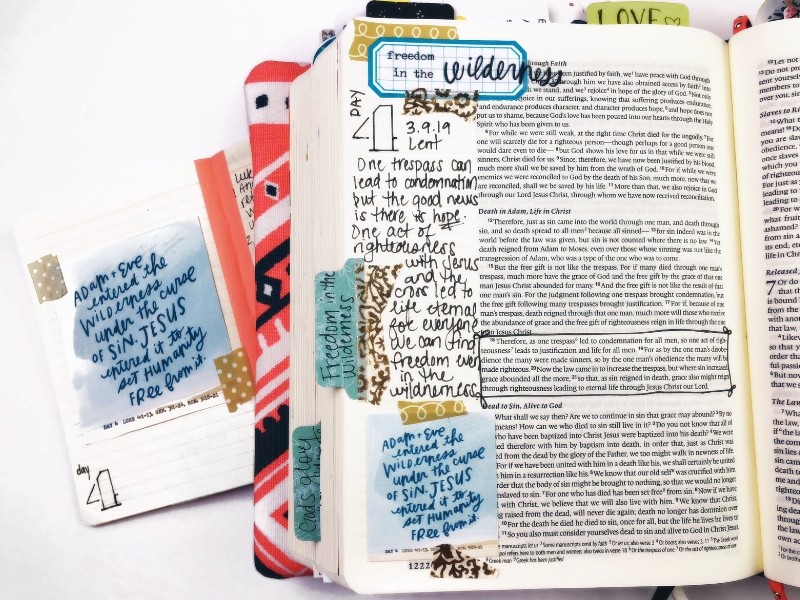 LOVE
freedom
in the wilderness
DAY
4
3.9.19
Lent
One trespass can
lead to condemnation
but the good news
is there is hope.
One act of
righteousness
with Jesus
and the
cross led to
life eternal
for everyone
We can find
freedom even
in the
wilderness
Freedom in the
wilderness
Adam + Eve
entered the
Wilderness
under the curse
of Sin. Jesus
entered it to
set Humanity
Free from it.
day
4
Adam + Eve
entered the
Wilderness
under the curse
of Sin. Jesus
entered it to
set Humanity
Free from it.
through Faith
been justified by faith, we have peace with God through
him we have also obtained access by faith
we stand, and we rejoice in hope of the glory of God. Not only
rejoice in our sufferings, knowing that suffering produces endurance,
and endurance produces character, and character produces hope, and hope does not
put us to shame, because God's love has been poured into our hearts through the Holy
Spirit who has been given to us.
6 For while we were still weak, at the right time Christ died for the ungodly. 7 For
one will scarcely die for a righteous person—though perhaps for a good person one
would dare even to die— 8 but God shows his love for us in that while we were still
sinners, Christ died for us. 9 Since, therefore, we have now been justified by his blood,
much more shall we be saved by him from the wrath of God. 10 For if while we were
enemies we were reconciled to God by the death of his Son, much more, now that we
are reconciled, shall we be saved by his life. 11 More than that, we also rejoice in God
through our Lord Jesus Christ, through whom we have now received reconciliation.
Death in Adam, Life in Christ
12 Therefore, just as sin came into the world through one man, and death through
sin, and so death spread to all men because all sinned— 13 for sin indeed was in the
world before the law was given, but sin is not counted where there is no law. 14 Yet
death reigned from Adam to Moses, even over those whose sinning was not like the
transgression of Adam, who was a type of the one who was to come.
15 But the free gift is not like the trespass. For if many died through one man's
trespass, much more have the grace of God and the free gift by the grace of that one
man Jesus Christ abounded for many. 16 And the free gift is not like the result of that
one man's sin. For the judgment following one trespass brought condemnation, but
the free gift following many trespasses brought justification. 17 For if, because of one
man's trespass, death reigned through that one man, much more will those who receive
the abundance of grace and the free gift of righteousness reign in life through the
man Jesus Christ.
18 Therefore, as one trespass led to condemnation for all men, so one act of righ-
teousness leads to justification and life for all men. 19 For as by the one man's disobe-
dience the many were made sinners, so by the one man's obedience the many will be
made righteous. 20 Now the law came in to increase the trespass, but where sin increased,
grace abounded all the more, 21 so that, as sin reigned in death, grace also might reign
through righteousness leading to eternal life through Jesus Christ our Lord.
Dead to Sin, Alive to God
What shall we say then? Are we to continue in sin that grace may abound? 2 By no
How can we who died to sin still live in it? 3 Do you not know that all of
who have been baptized into Christ Jesus were baptized into his death? 4 We were
therefore with him by baptism into death, in order that, just as Christ was
from the dead by the glory of the Father, we too might walk in newness of life.
For if we have been united with him in a death like his, we shall certainly be united
in a resurrection like his. 6 We know that our old self was crucified with him
order that the body of sin might be brought to nothing, so that we would no longer
enslaved to sin. 7 For one who has died has been set free from sin. 8 Now if we have
with Christ, we believe that we will also live with him. 9 We know that Christ,
being raised from the dead, will never die again; death no longer has dominion over
10 For the death he died he died to sin, once for all, but the life he lives he lives to
So you also must consider yourselves dead to sin and alive to God in Christ Jesus.